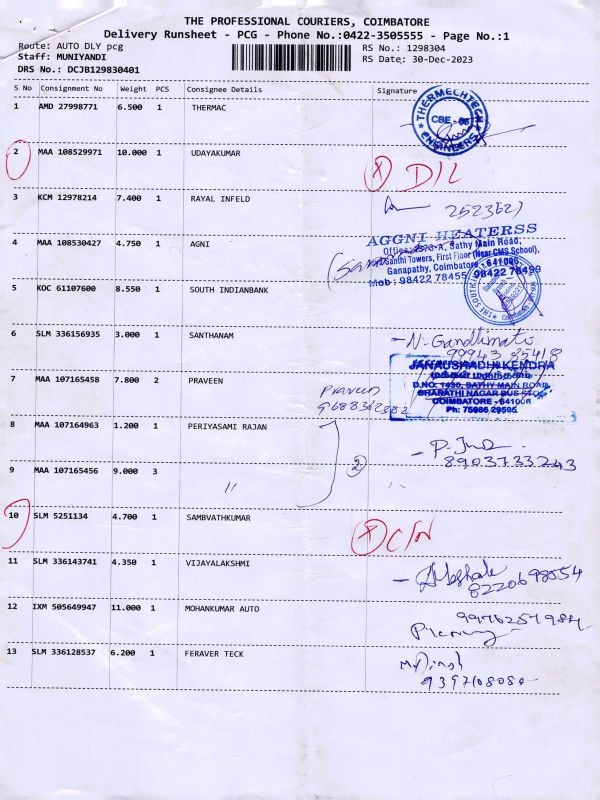 THE PROFESSIONAL COURIERS, COIMBATORE
Delivery Runsheet - PCG - Phone No.:0422-3505555 - Page No.:1
Route: AUTO DLY pcg RS No.: 1298304
Staff: MUNIYANDI RS Date: 30-Dec-2023
DRS No.: DCJB129830401
S No Consignment No Weight PCS Consignee Details Signature
1 AMD 27998771 6.500 1 THERMAC
THERMECHTECH ENGINEERS CBE - 06
2 MAA 108529971 10.000 1 UDAYAKUMAR
X D/L
3 KCM 12978214 7.400 1 RAYAL INFELD
2523621
4 MAA 108530427 4.750 1 AGNI
AGGNI HEATERSS
Sathy Main Road,
Santhi Towers, First Floor (Near CMS School),
Ganapathy, Coimbatore - 641006
Mob : 98422 78455, 98422 78499
5 KOC 61107600 8.550 1 SOUTH INDIANBANK
6 SLM 336156935 3.000 1 SANTHANAM
N. Gandhimati
99943 85418
7 MAA 107165458 7.800 2 PRAVEEN
Praveen
JANAUSHADHI KENDRA
D.NO. 1430, SATHY MAIN ROAD
BHARATHI NAGAR BUS STOP
COIMBATORE - 641006
Ph: 75986 29595
8 MAA 107164963 1.200 1 PERIYASAMI RAJAN
8903733243
9 MAA 107165456 9.000 3 〃
2
10 SLM 5251134 4.700 1 SAMBVATHKUMAR
X C/N
11 SLM 336143741 4.350 1 VIJAYALAKSHMI
8220698554
12 IXM 505649947 11.000 1 MOHANKUMAR AUTO
13 SLM 336128537 6.200 1 FERAVER TECK